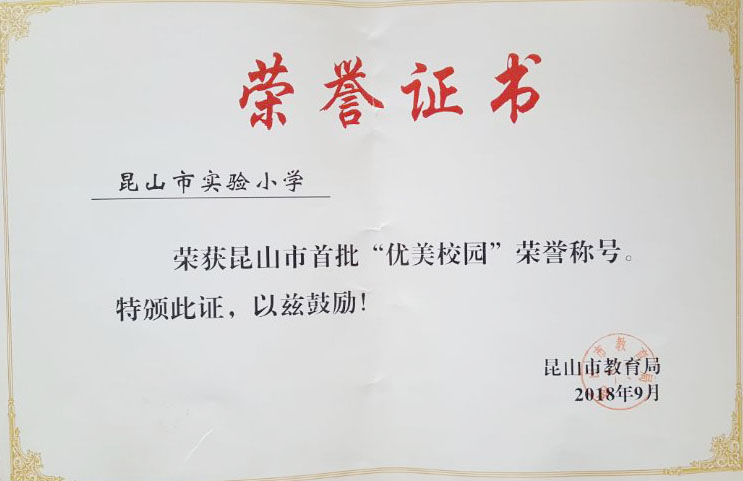 荣誉证书
昆山市实验小学
荣获昆山市首批“优美校园”荣誉称号。
特颁此证，以兹鼓励！
昆山市教育局
2018年9月